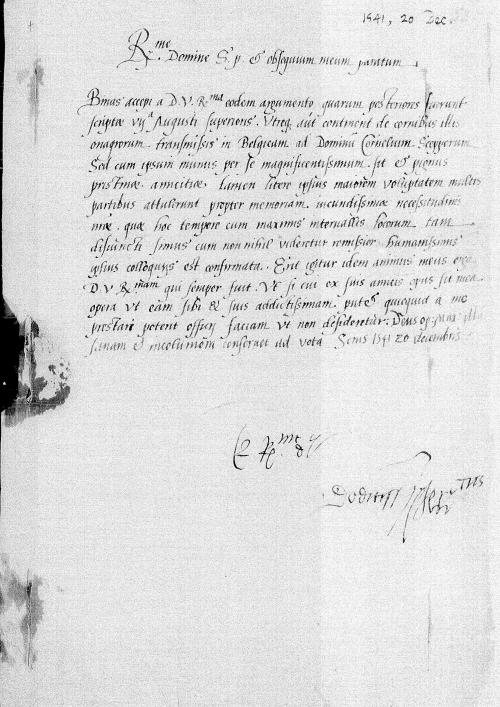 1541, 20 Dec.
R.me Domine S. p. & obsequium meum paratum.
Binas accepi a D. V. R.ma eodem argumento quarum posteriores fuerunt
scriptæ vija Augusti superioris. Utreq. aut continent de cornibus illis
onagrorum transmissis in Belgicam ad Dominū Cornelium Scepperum
Sed cum ipsum munus per se magnificentissimum sit & pignus
pristinæ amicitiæ tamen litere ipsius maiorem voluptatem multis
partibus attulerunt propter memoriam iucundissimæ necessitudinis
nræ. quæ hoc tempore cum maximis intervallis locorum tam
disiuncti simus cum non nihil videretur remissior humanissimis
ipsius colloquijs est confirmata. Erit igitur idem animus meus erga
D. V. R.mam qui semper fuit. Vt si cui ex suis amicis opus sit mea
opera vt eam sibi & suis addictissimam putet quicquid a me
prestari poterit officij faciam vt non desideretur. Deus op. max. illā
sanam & incolumem conservet ad vota 1541 20 decembris
R.me d. V.